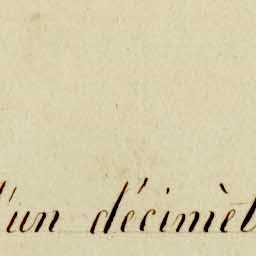 d'un décimèt